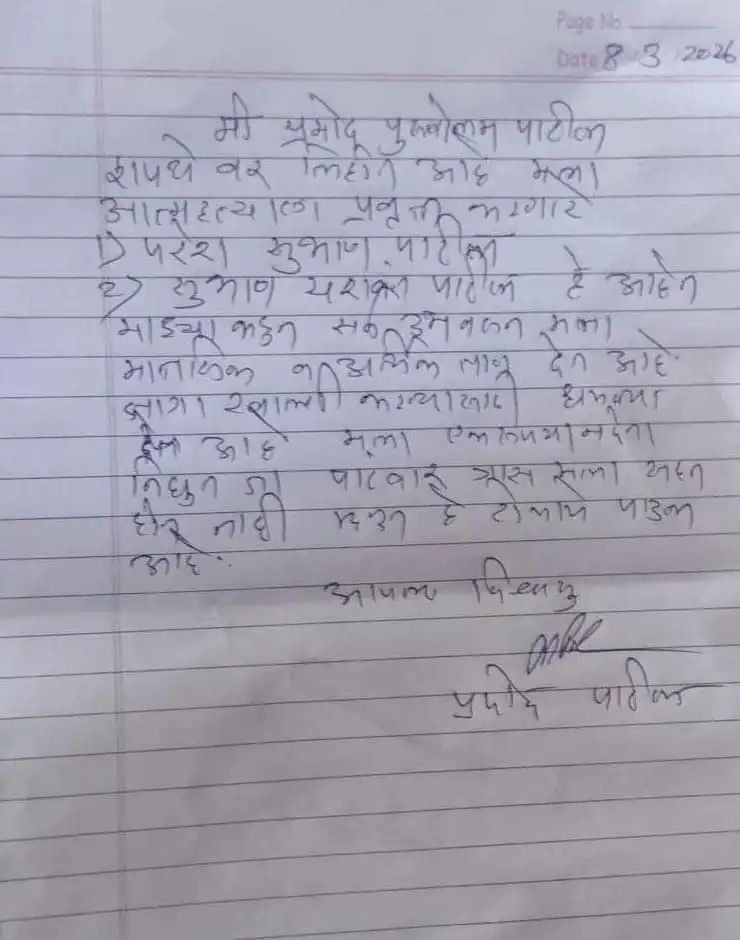 Page No.
Date 8 3 2026
मी प्रमोद पुरुषोत्तम पाटील
शपथे वर लिहीत आहे मला
आत्महत्याला प्रवृत्त करणारे
1) परेश सुभाष पाटील
2) सुभाष यशवंत पाटील हे आहेत
माझ्या कडून मला
मानसिक व आर्थिक देत आहे
जागा खाली करण्यासाठी धमक्या
देत आहे मला एक रुपया न देता
निघुन जा त्रास मला सहन
होत नाही म्हणून हे पाऊल
आहे.
आपला विश्वासु
प्रमोद पाटील